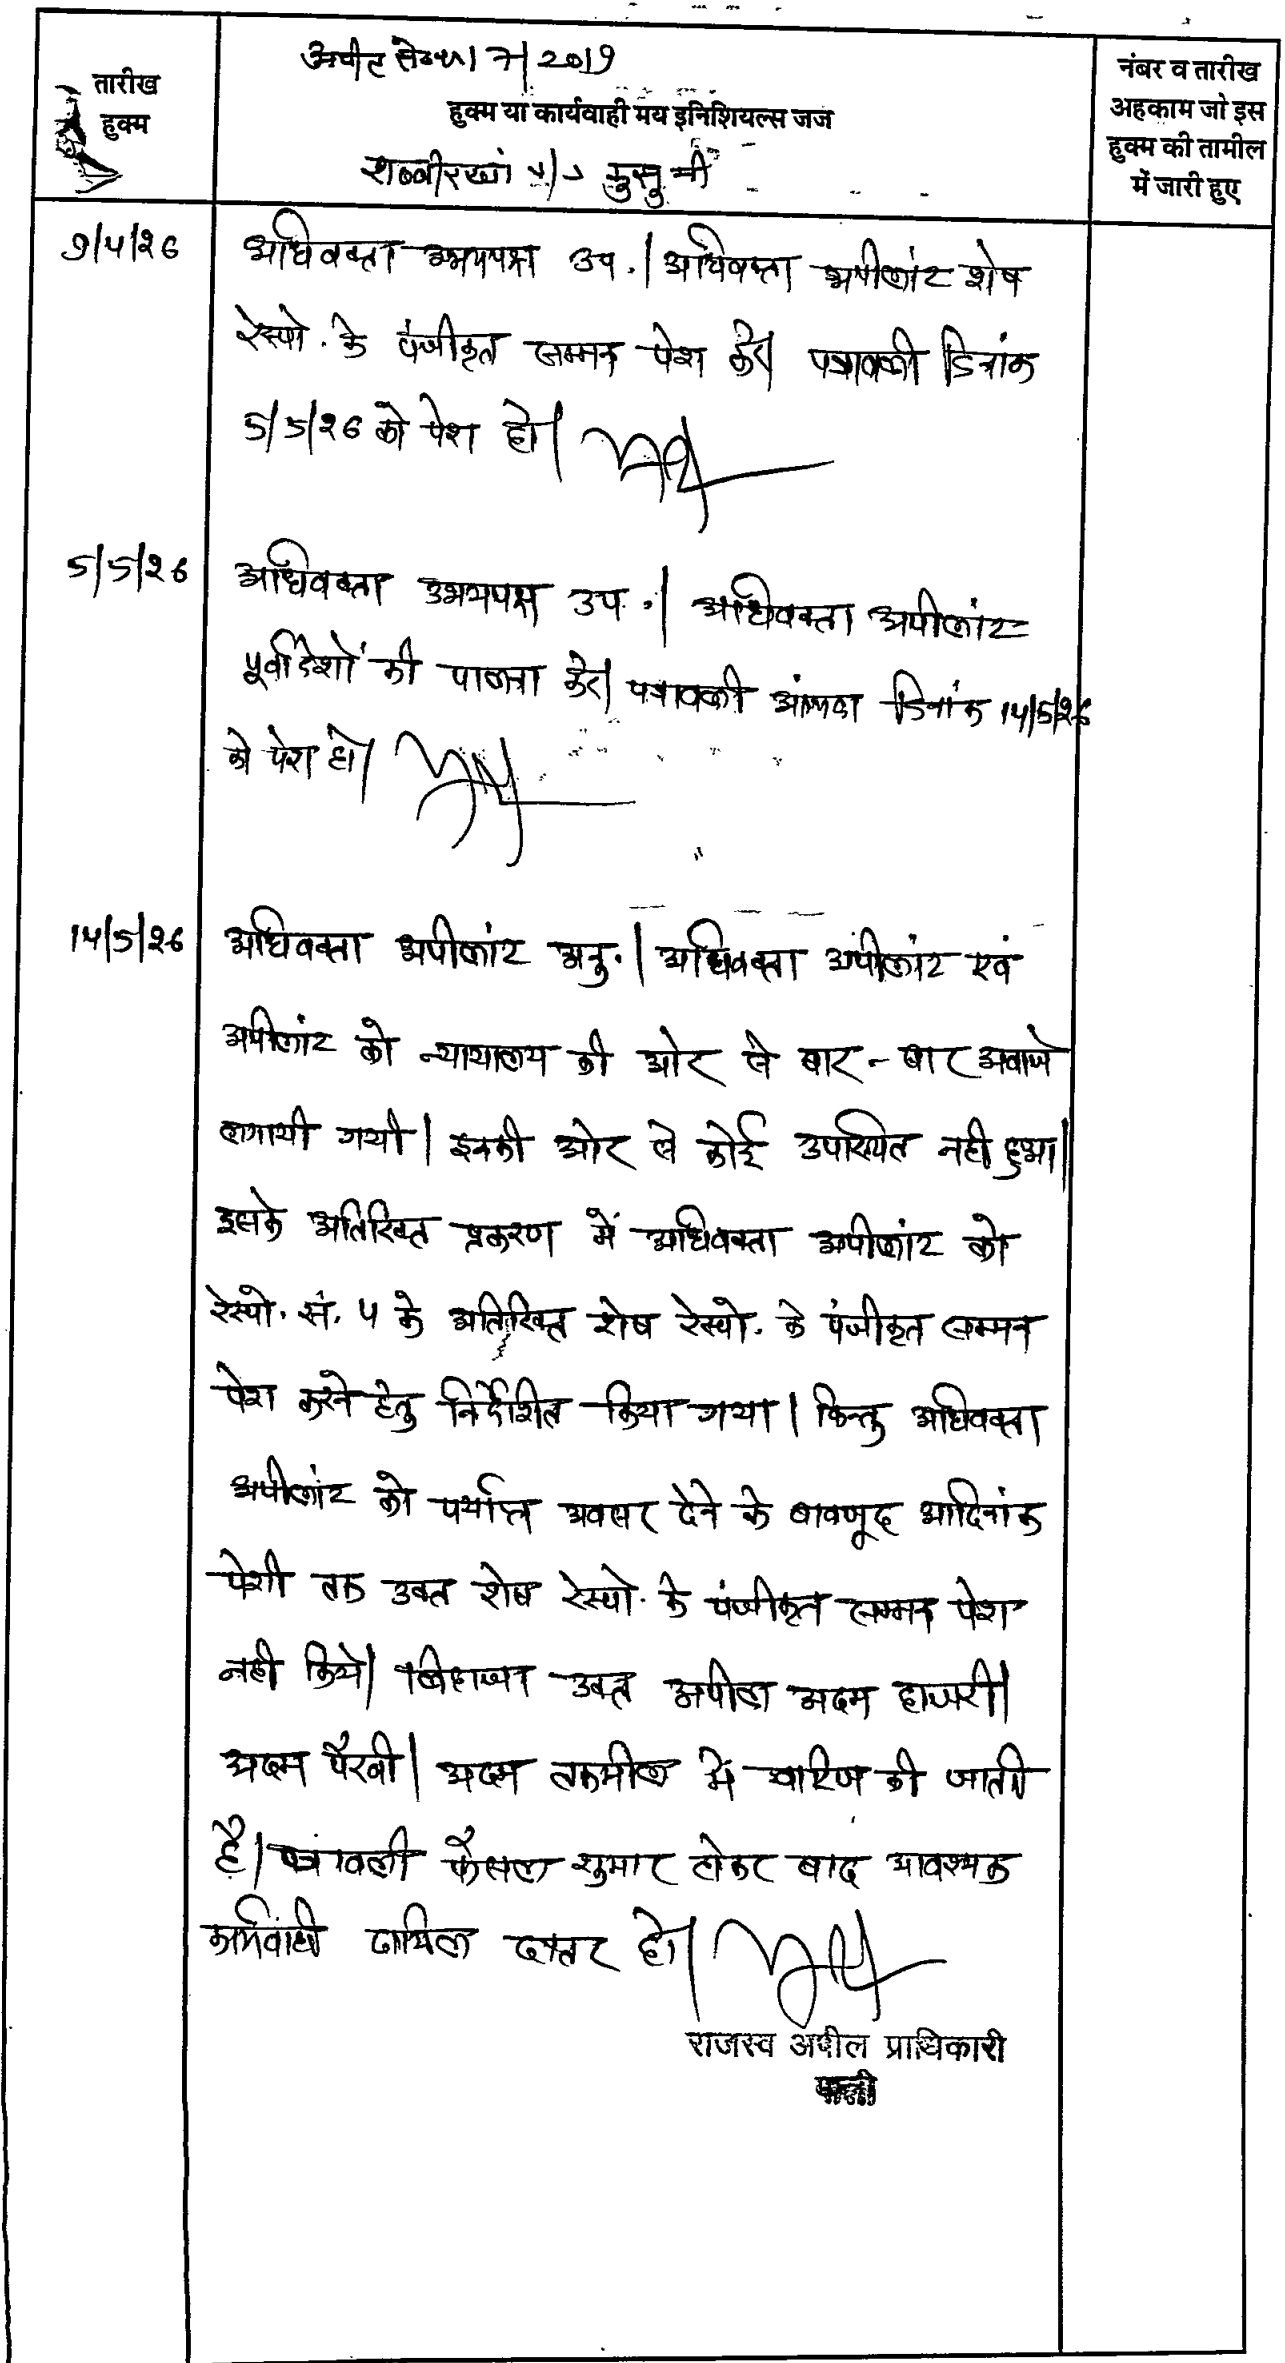 अपील संख्या 7/2019
तारीख
हुक्म
हुक्म या कार्यवाही मय इनिशियल्स जज
नंबर व तारीख
अहकाम जो इस
हुक्म की तामील
में जारी हुए
शब्बीरखां
9/4/26 अधिवक्ता उभयपक्ष उप.। अधिवक्ता अपीलांट शेष
रेस्पो. के पंजीकृत सम्मन पेश करें। पत्रावली दिनांक
5/5/26 को पेश हो।
5/5/26 अधिवक्ता उभयपक्ष उप.। अधिवक्ता अपीलांट
पूर्वादेशों की पालना करें। पत्रावली दिनांक 14/5/26
को पेश हो।
14/5/26 अधिवक्ता अपीलांट अनु.। अधिवक्ता अपीलांट एवं
अपीलांट को न्यायालय की ओर से बार-बार अवाजे
लगायी गयी। इनकी ओर से कोई उपस्थित नही हुआ।
इसके अतिरिक्त प्रकरण में अधिवक्ता अपीलांट को
रेस्पो. सं. 4 के अतिरिक्त शेष रेस्पो. के पंजीकृत सम्मन
पेश करने हेतु निर्देशित किया गया। किन्तु अधिवक्ता
अपीलांट को पर्याप्त अवसर देने के बावजूद आदिनांक
पेशी तक उक्त शेष रेस्पो. के पंजीकृत सम्मन पेश
नही किये। लिहाजा उक्त अपील अदम हाजरी।
अदम पैरवी। अदम तकमील में खारिज की जाती
है। पत्रावली फैसल शुमार होकर बाद आवश्यक
कार्यवाही दाखिल दफ्तर हो।
राजस्व अपील प्राधिकारी
पाली